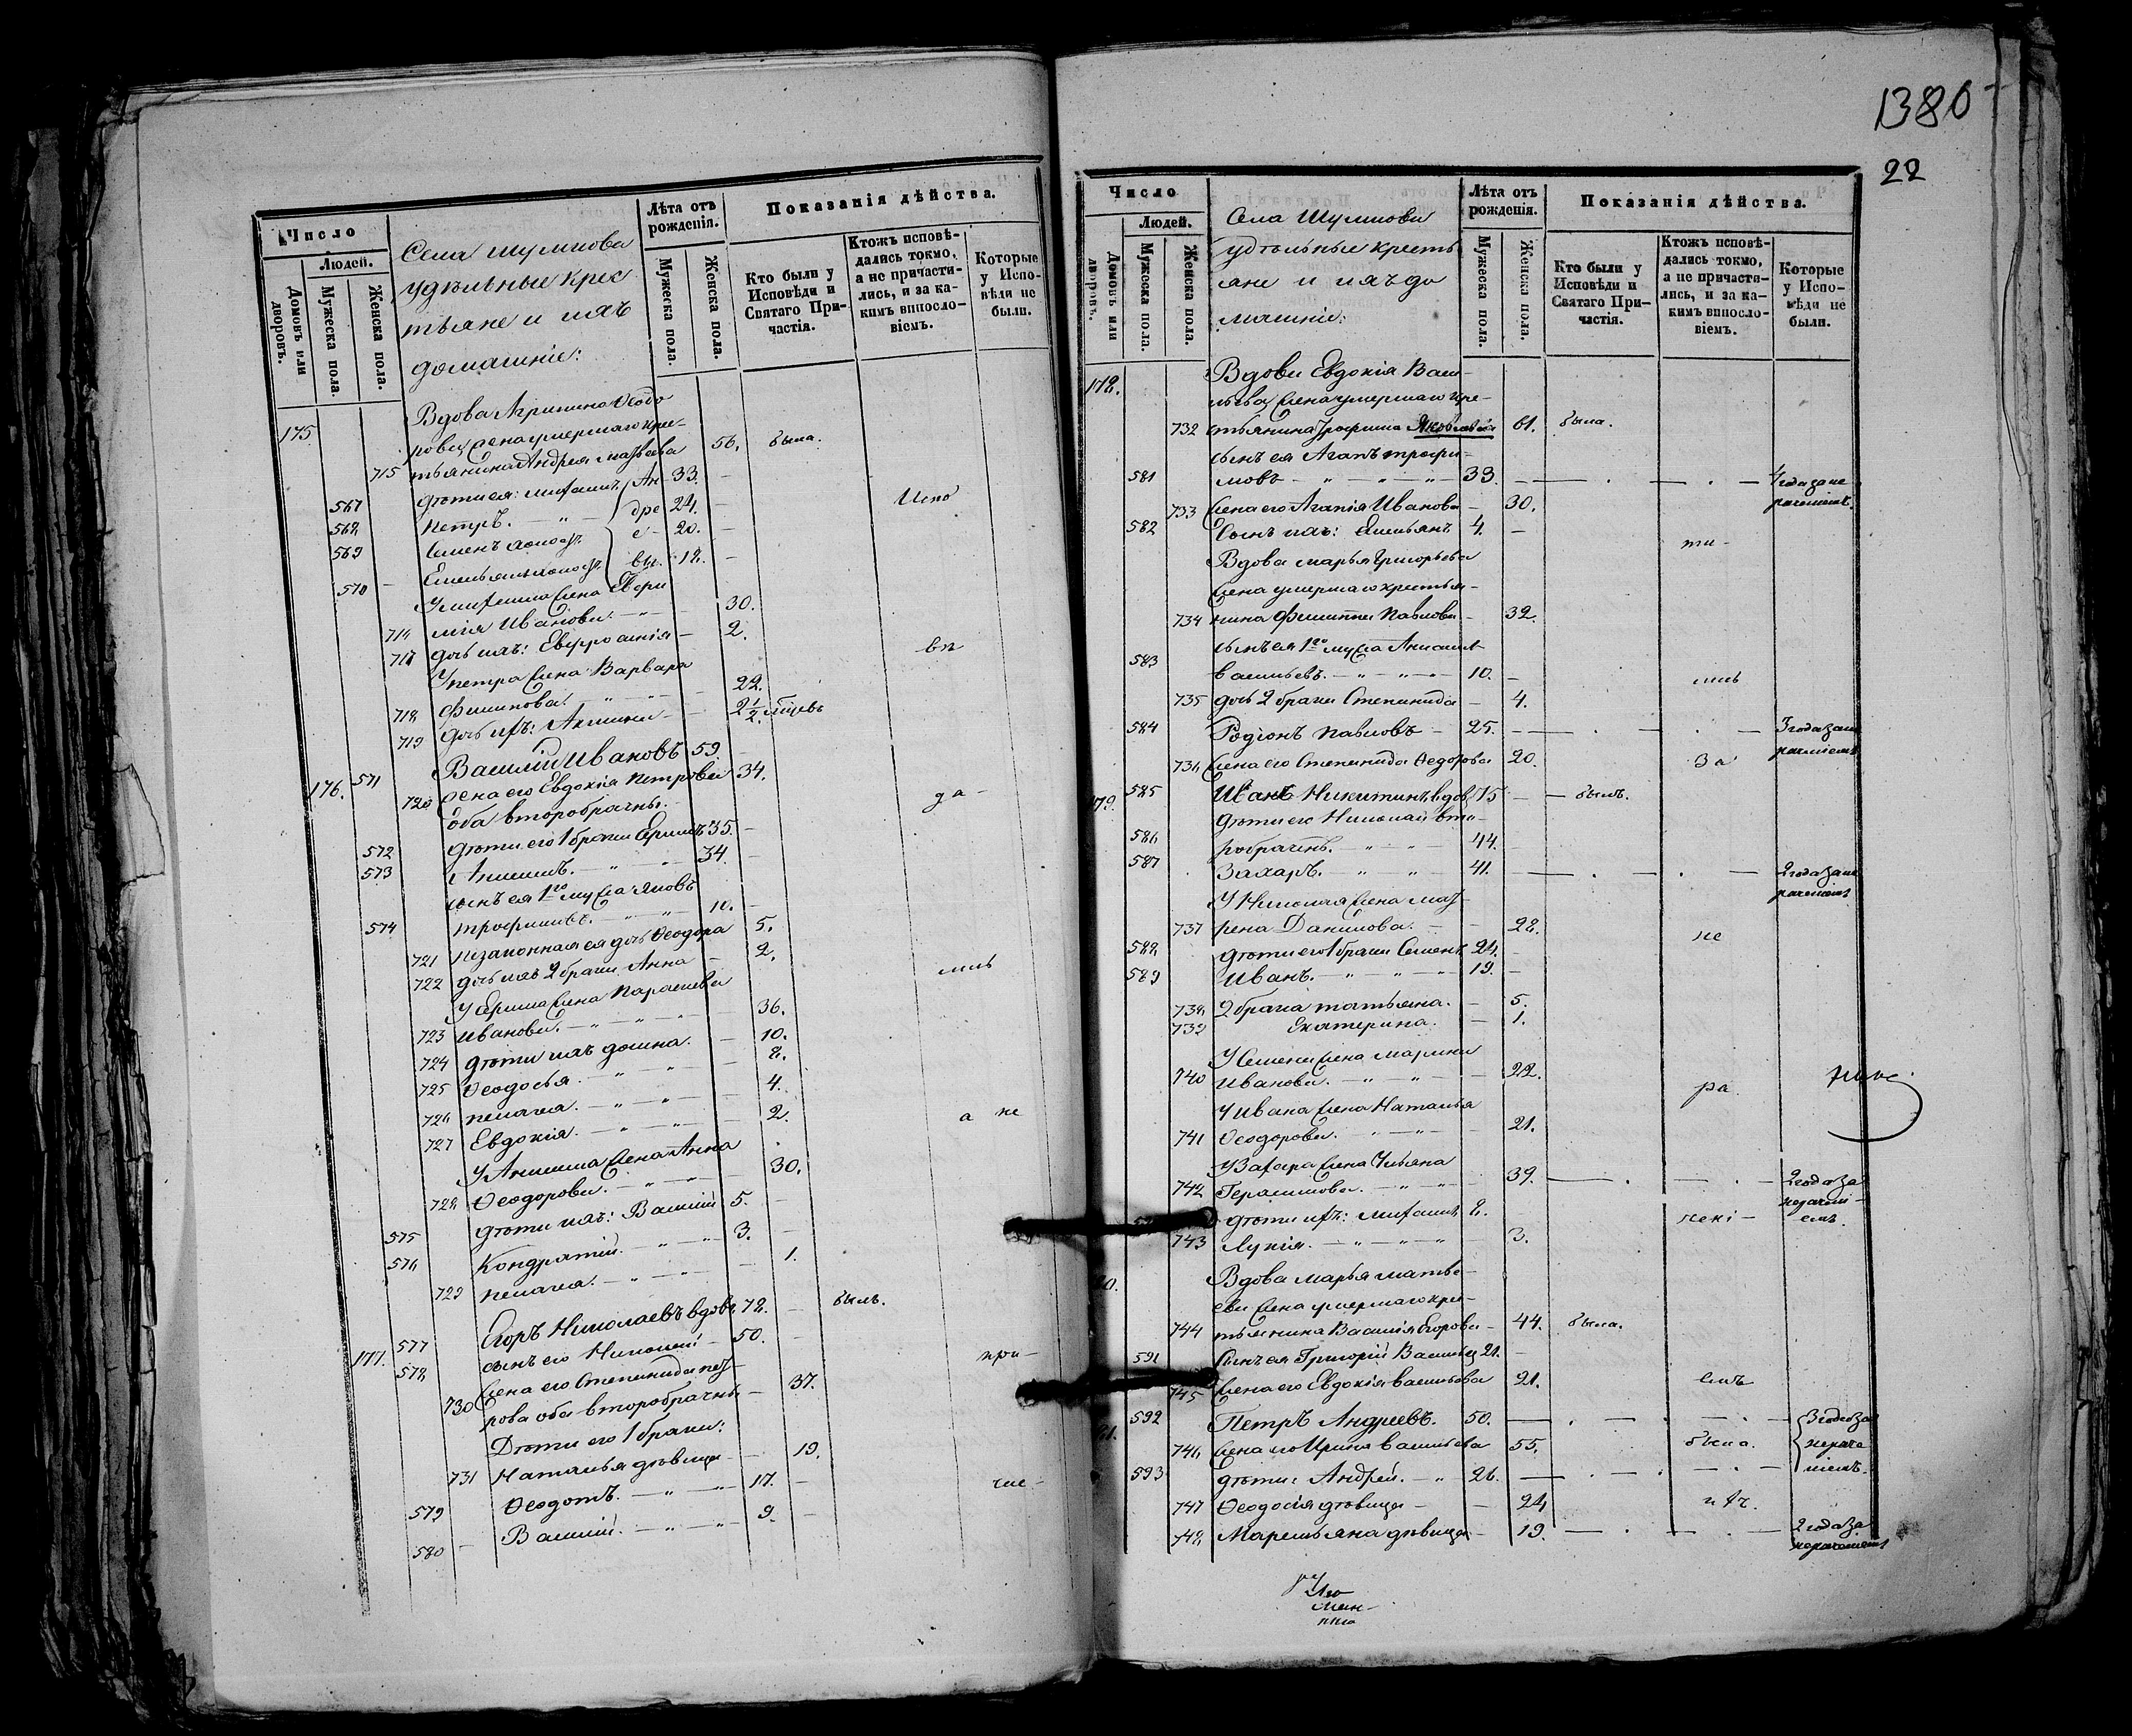 Число
Людей.
Домовъ или дворовъ.
Мужеска пола.
Женска пола.
Села Шумкова
удѣльные крес
тьяне и ихъ
домашніе:
Лѣта отъ рожденія.
Мужеска пола.
Женска пола.
Показанія дѣйства.
Кто были у Исповѣди и Святаго Причастія.
Ктожъ исповѣдались токмо, а не причастились, и за какимъ винословіемъ.
Которые у Исповѣди не были.
175. Вдова Агрипина Ѳеодо
рова жена умершаго кре-
715 стьянина Андрея Матѣева 56. была.
567 дѣти ея: Михаилъ 33. —
568 Петръ. — „ — 24. —
569 Семенъ холост. 20. —
570 Емельянъ холост. 18. —
Андреевы
У Михаила жена Евфи
716 мія Иванова. — „ — 30.
717 дочь ихъ: Евфросинія — 2.
У Петра жена Варвара
718 Филипова. — „ — 22.
719 дочь ихъ: Акилина — 2 1/2
176. 571 Василій Ивановъ 59
720 жена его Евдокія Петрова 34.
оба второбрачны. —
572 дѣти его 1 брака Ермилъ 35. —
573 Анисимъ. — „ — 34. —
сынъ ея 1го мужа Яковъ
574 Трофимовъ. — „ — 10. —
721 незаконная ея дочь Ѳеодора 5.
722 дочь ихъ 2 брака Анна — 2.
У Ермила жена Параскева
723 Иванова. — „ — „ — 36.
724 дѣти ихъ Домна. — 10.
725 Ѳеодосья. — „ — 8.
726 Пелагея. — „ — „ — 4.
727 Евдокія. — „ — „ — 2.
У Анисима жена Анна
728 Ѳеодорова. — „ — „ — 30.
575 дѣти ихъ: Василій 5. —
576 Кондратій. — „ — „ — 3. —
729 Пелагея. — „ — „ — 1.
177. 577 Егоръ Николаевъ вдовъ 72. — былъ.
578 сынъ его Николай — 50. —
жена его Степанида Пет-
730 рова оба второбрачны — 37.
Дѣти его 1 брака:
731 Наталья дѣвица — 19.
579 Ѳеодотъ. — „ — „ — 17. —
580 Василій. — „ — „ — 9. —
Испо
вѣ
да-
лись
а не
при-
час-
1380
22
Число
Людей.
Домовъ или дворовъ.
Мужеска пола.
Женска пола.
Села Шумкова
удѣльные кресть
яне и ихъ до
машніе:
Лѣта отъ рожденія.
Мужеска пола.
Женска пола.
Показанія дѣйства.
Кто были у Исповѣди и Святаго Причастія.
Ктожъ исповѣдались токмо, а не причастились, и за какимъ винословіемъ.
Которые у Исповѣди не были.
178. Вдова Евдокія Васи-
льева жена умершаго кре-
732 стьянина Трофима Яковлева 61. была.
сынъ ея Агапъ Трофи-
581 мовъ — „ — „ — 33. — 4 года за не
раченіемъ.
733 жена его Агапія Иванова — 30.
582 Сынъ ихъ: Емельянъ 4. —
Вдова Марья Григорьева
жена умершаго крестья-
734 нина Филиппа Павлова — 32.
583 сынъ ея 1го мужа Анисимъ
Васильевъ. — „ — „ — 10. —
735 дочь 2 брака Степанида — 4.
584 Родіонъ Павловъ — 25. — 3 года за не
раченіемъ
736 жена его Степанида Ѳедорова 20.
179. 585 Иванъ Никитинъ вдов. 75 — былъ.
дѣти его Николай вто-
586 робрачный. — „ — 44. —
587 Захаръ. — „ — „ — 41. — 2 года за не
раченіемъ
У Николая жена Мат-
737 рена Данилова. — 28.
588 дѣти его 1 брака Семенъ 24. —
589 Иванъ. — „ — „ — 19. —
738 2 брака Татьяна. — 5.
739 Екатерина. — 1.
У Семена жена Марина
740 Иванова. — „ — „ — 22.
У Ивана жена Наталья
741 Ѳеодорова. — „ — „ — 21.
У Захара жена Ульяна
742 Герасимова. — „ — „ — 39. — 2 года за
нерачені-
емъ.
дѣти ихъ: Михаилъ 8. —
743 Лукія. — „ — „ — 3.
Вдова Марья Матвѣ-
ева жена умершаго кре-
744 стьянина Василія Егорова — 44. была.
591 Сынъ ея Григорій Васильев 21. —
745 жена его Евдокія Васильева 21.
592 Петръ Андреевъ. 50. — 3 года за
нераче
ніемъ.
746 жена его Ирина Васильева 55. была.
593 дѣти: Андрей. — „ 26. —
747 Ѳеодосія дѣвица — 24
748 Маремьяна дѣвица — 19. — 2 года за
нераченіемъ
ти-
лись
за
не
ра
чені-
емъ